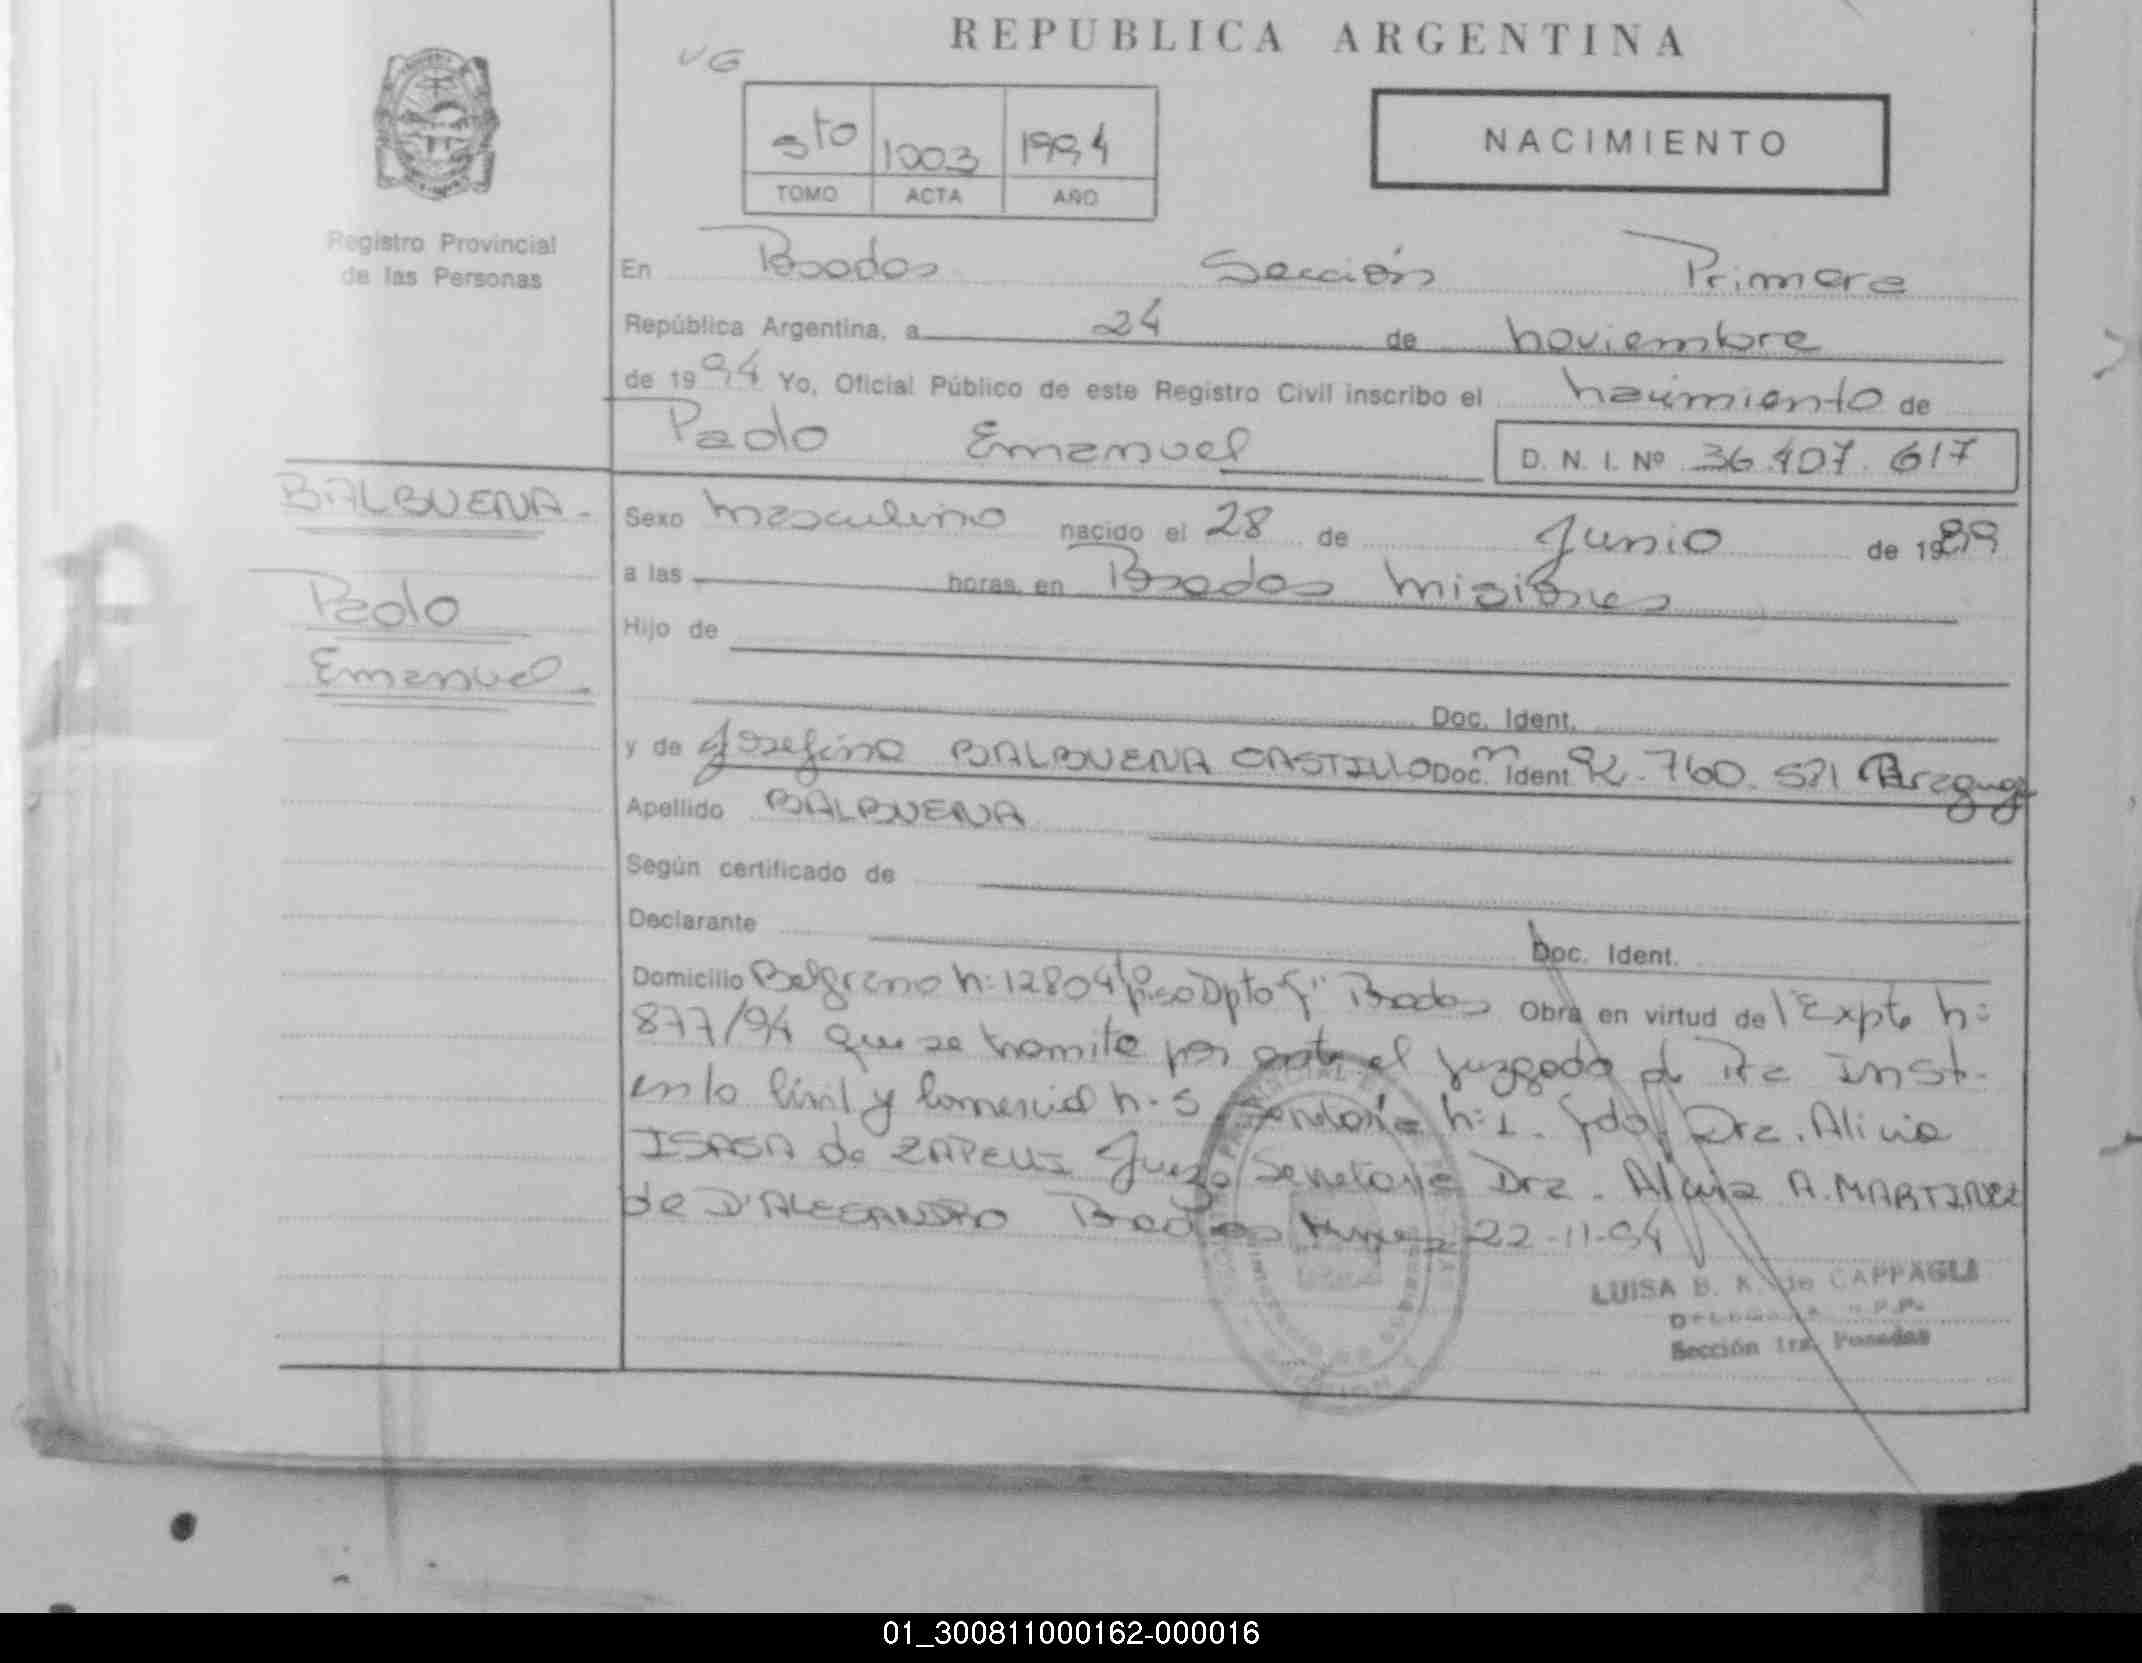 REPUBLICA ARGENTINA
VG
5to 1003 1994
TOMO ACTA AÑO
NACIMIENTO
Registro Provincial
de las Personas
En Posadas Sección Primera
República Argentina, a 24 de noviembre
de 1994 Yo, Oficial Público de este Registro Civil inscribo el nacimiento de
Paolo Emanuel D. N. I. Nº 36.407.617
BALBUENA-
Paolo
Emanuel.
Sexo masculino nacido el 28 de Junio de 1989
a las horas en Posadas Misiones
Hijo de
Doc. Ident.
y de Josefina BALBUENA CASTILLO Doc. Ident. 92.760.521 Paraguay
Apellido BALBUENA
Según certificado de
Declarante Doc. Ident.
Domicilio Belgrano n: 1280 4 piso Dpto Posadas Obra en virtud del Expte n:
877/94 que se tramita por ante el juzgado de 1ra Inst.
en lo Civil y Comercial n. 5 Secretaría n: 1. fdo/ Dra. Alicia
ISASA de Juez Secretaria Dra. Alicia A. MARTINEZ
de D'ALESANDRO Posadas Mnes 22-11-94
LUISA B. K. de CAPPAGLI
Sección 1ra. Posadas
01_300811000162-000016